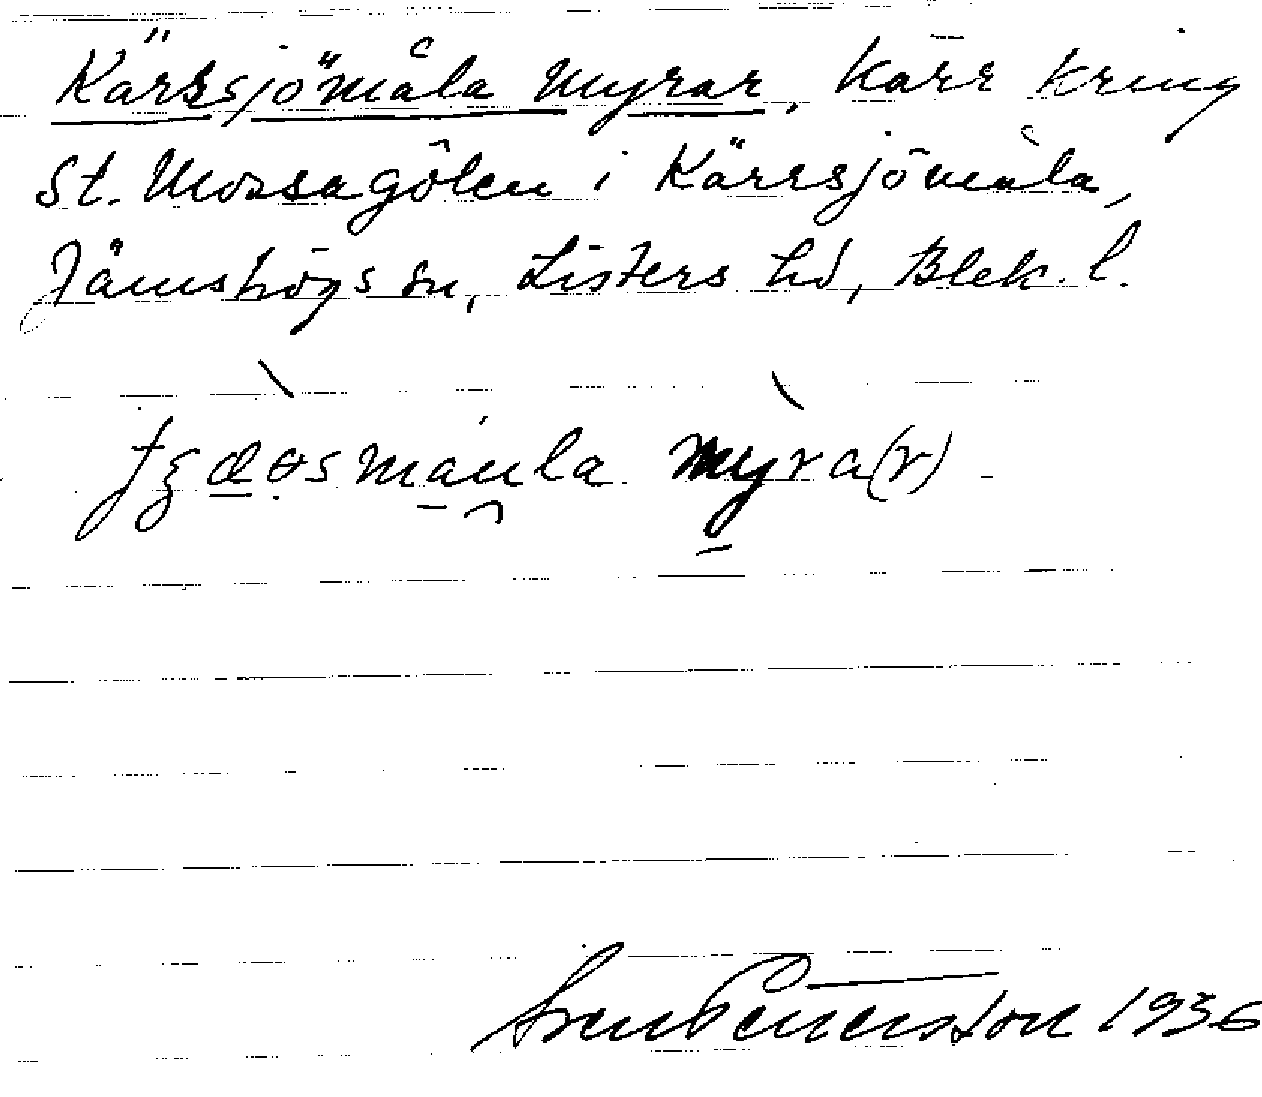 Kärrsjömåla myrar, kärr kring
St. Mossagölen i Kärrsjömåla,
Jämshögs sn, Listers hd, Blek. l.
myra(r)
Sven Pettersson 1936